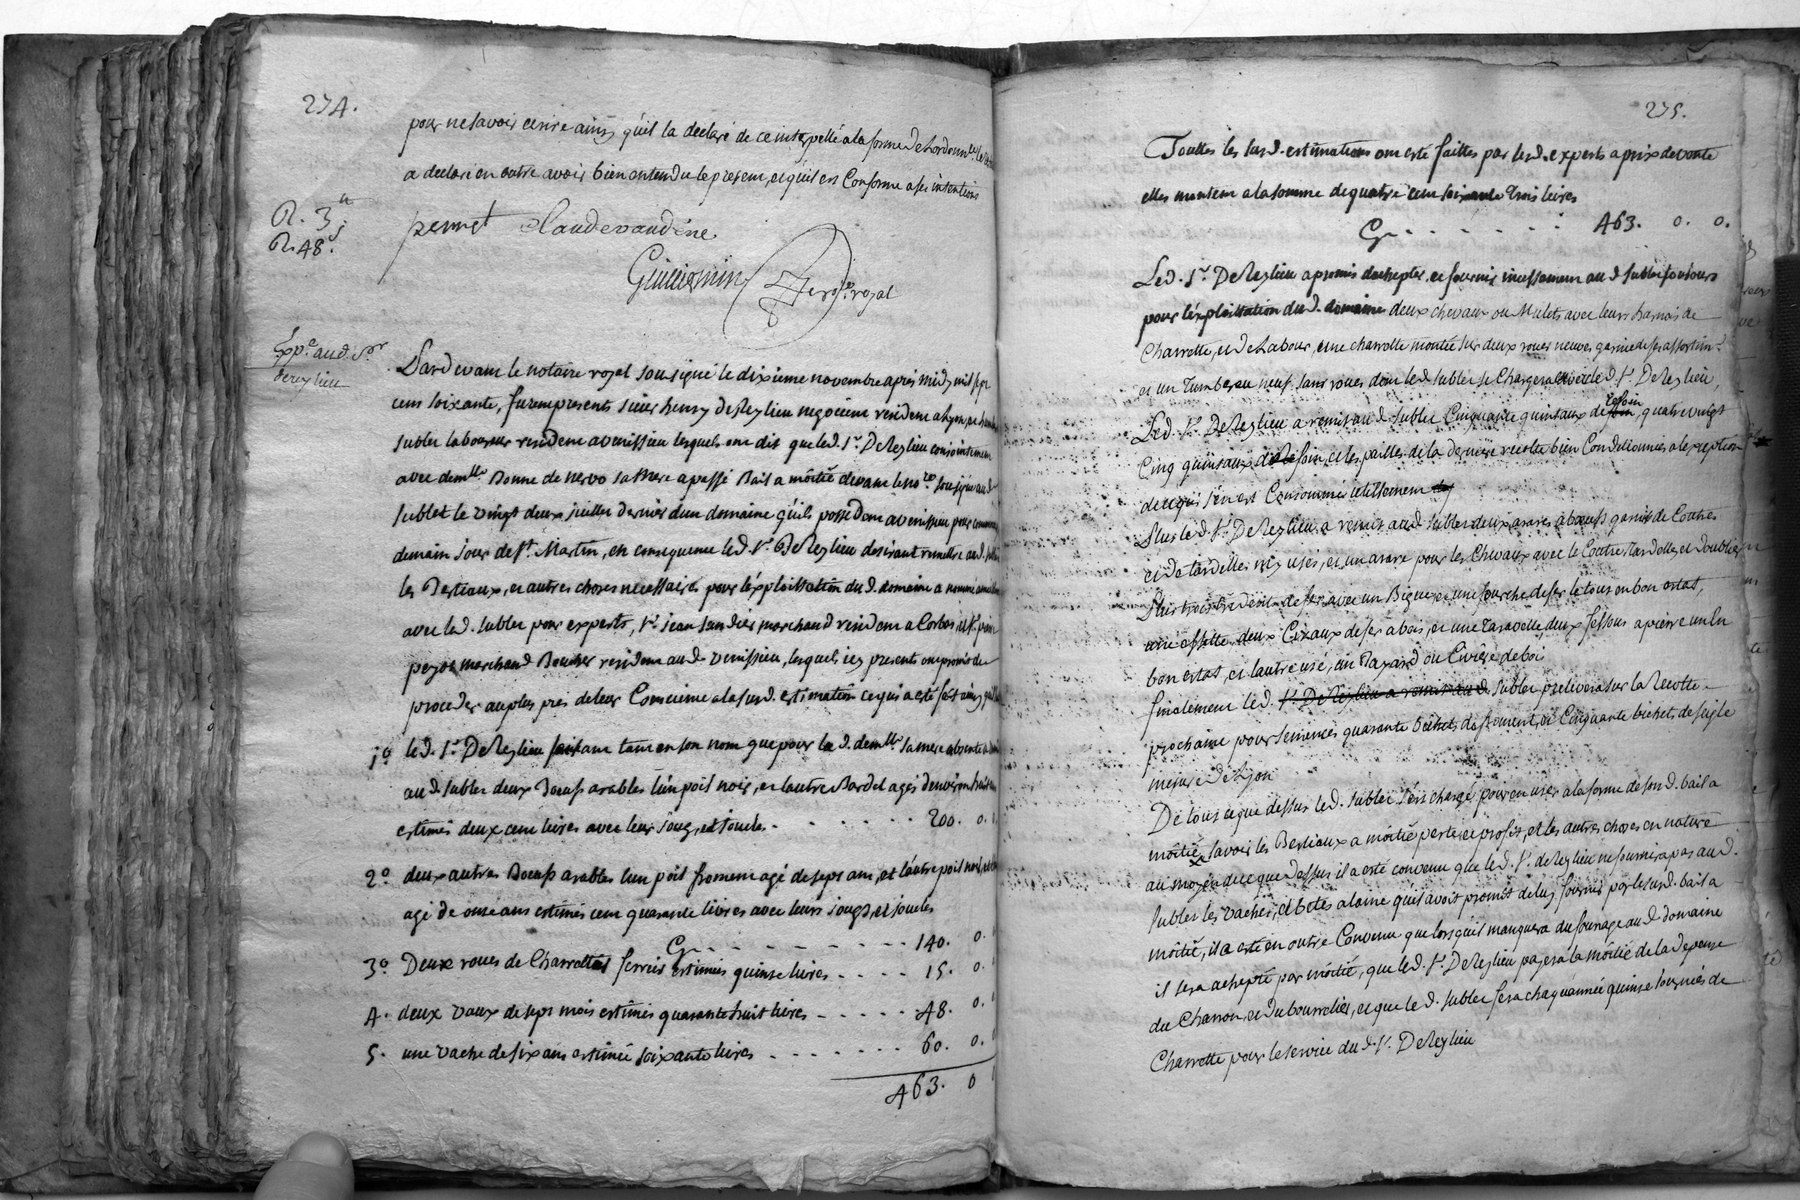 274.
pour ne savoir ecrire ainsy qu'il la declaré de ce interpellé a la forme de Lordonn.ce
a declaré en outre avoir bien entendu le present, et qu'il est Conforme a ses intentions
R. 3
R. 48.
perret Claude vaudine
Guillermin
no.re royal
Exp.e aud. S.r
dereylieu
Pardevant le notaire royal soussigné le dixieme novembre apres midy mil sept
cent soixante, furent presents sieur henry de Reylieu negociant resident a Lyon, et
sublet laboureur resident a venissieu lesquels ont dit que led. S.r De Reylieu conjointement
avec dem.lle Bonne de nervo sa Mere a passé Bail a moitié devant le no.re soussigné aud.
sublet le vingt deux juillet dernier d'un domaine qu'ils possedent a venissieu pour commencer
demain jour de S.t Martin, en consequence led. S.r De Reylieu desirant remettre aud.
les Bestiaux, et autres choses necessaires pour l'exploitation dud. domaine a nommé
avec led. sublet pour experts, S.r jean marchand resident a Corbas, et S.r
marchand Boucher resident aud. venissieu, lesquels icy presents ont promis de
proceder au plus pres de leur Conscience a la susd. estimation ce qui a esté fait ainsy
1.o led. S.r De Reylieu faisant tant en son nom que pour la d. dem.lle sa mere absente
aud. sublet deux Boeufs arables l'un poil noir, et l'autre Bardel agés d'environ huit
estimés deux cent livres avec leur joug, et joucles . . . . . . 200. 0.
2.o deux autres Boeufs arables l'un poil froment agé de sept ans, et l'autre poil noir,
agé de onze ans estimés cent quarante livres avec leurs jougs, et joucles
Cy . . . . . . . . 140. 0.
3.o Deux roues de Charrettes ferrées estimées quinze livres . . . . 15. 0.
4. deux vaux de sept mois estimés quarante huit livres . . . . . 48. 0.
5. une vache de six ans estimée soixante livres . . . . . . . 60. 0.
463. 0
275.
Touttes les susd. estimations ont esté faittes par lesd. experts a prix de vente
elles montent a la somme de quatre cent soixante trois livres
Cy . . . . . . . 463. 0. 0.
Led. S.r De Reylieu a promis d'achepter, et fournir incessament aud. sublet toujours
pour l'exploitation dud. domaine deux chevaux ou Mulets avec leurs harnois de
Charrette, et de Labour, une charrette montée sur deux roues neuves garnie de ses assortim.t
et un Tumbereau neuf sans roues dont led. sublet se Chargera avec led. S.r De Reylieu,
Led. S.r De Reylieu a remis aud. sublet Cinquante quintaux de foin, quatre vingt
Cinq quintaux de foin, et les pailles de la derniere recolte bien Conditionnées a l'exeption
de ce qui s'en est Consommé utillement
Plus led. S.r De Reylieu a remis aud. sublet deux arares a boeufs garnis de Coutres
et de tardelles my usés, et un arare pour les Chevaux avec le Coutre Tardelle, et doublier
Plus trois tridents de fer avec un Bigue et une fourche de fer le tout en bon estat,
une assette, deux Cizaux de fer a bois, et une Taravelle deux fessous a pierre un En
bon estat, et l'autre usé, un Bayard ou Civiere de bois
finalement led. S.r De Reylieu a remis aud. sublet prelevera sur la Recolte
prochaine pour semences quarante bichets de froment, et Cinquante bichets de seigle
mesure de Lyon
De tout ce que dessus led. sublet s'est chargé pour en user a la forme de son d. bail a
moitié, savoir les Bestiaux a moitié perte, et profit, et les autres choses en nature
au moyen de ce que dessus il a esté convenu que led. S.r de Reylieu ne fournira pas aud.
sublet les vaches, et betes a laine qu'il avoit promit de luy fournir par le susd. bail a
moitié, il a esté en outre Convenu que lorsqu'il manquera du fourage aud. domaine
il sera achepté par moitié, que led. S.r De Reylieu payera la moitié de la depense
du Charron, et du bourrelier, et que led. sublet fera chaque année quinze journées de
Charrette pour le service dud. S.r De Reylieu